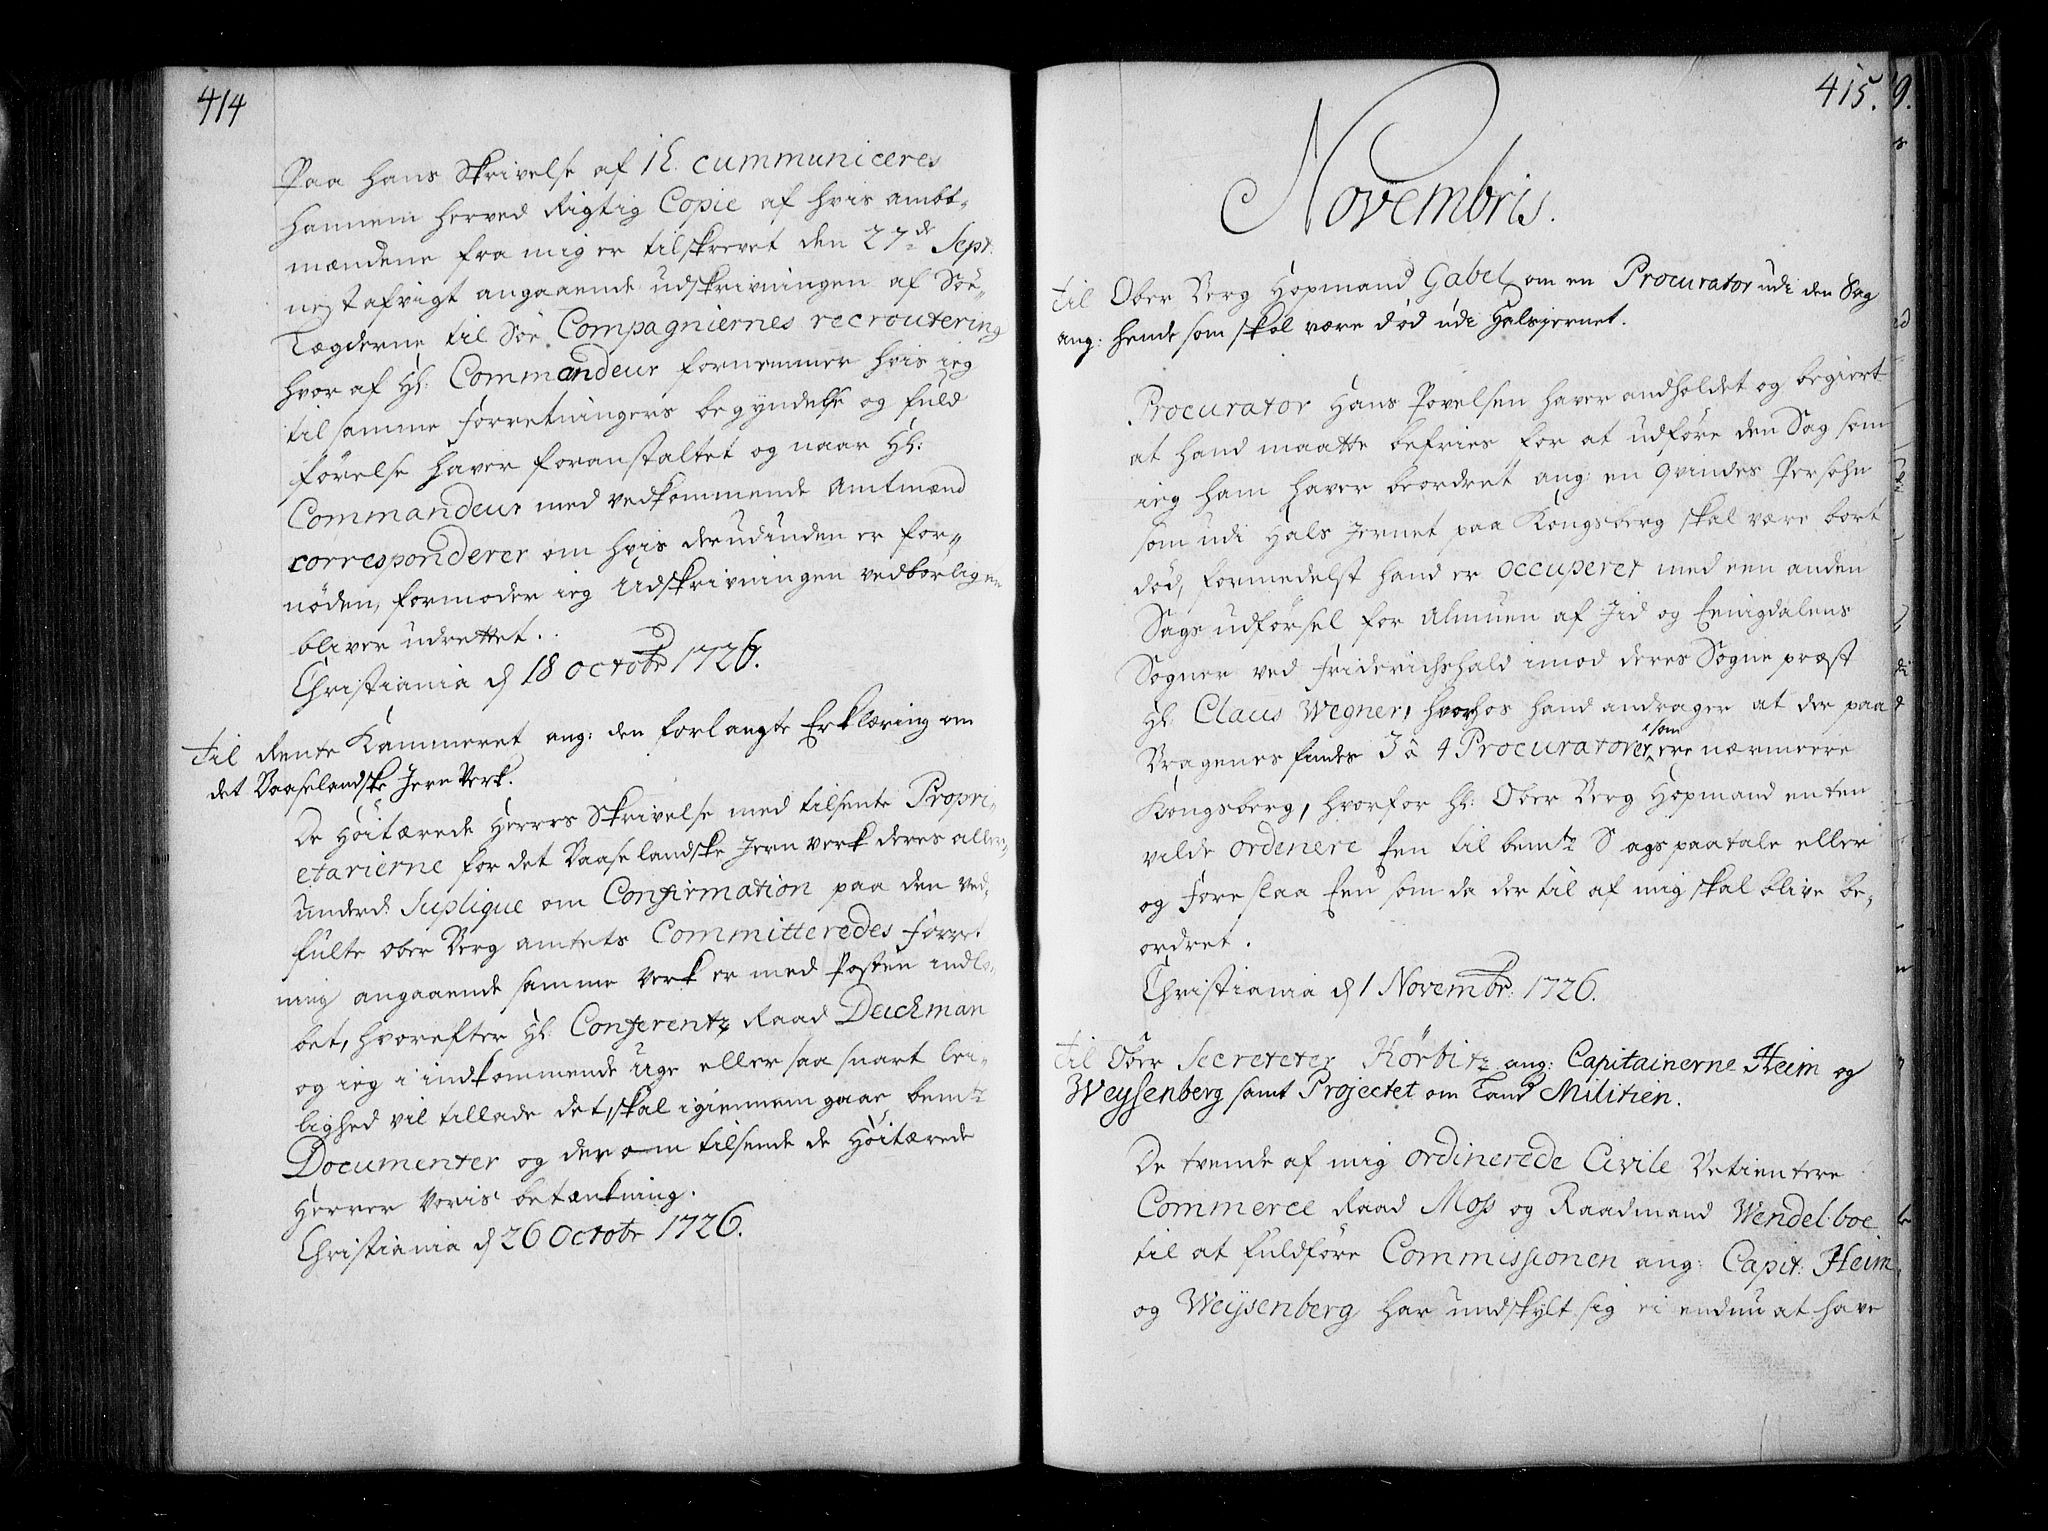 414
Paa hans Skrivelse af 1t. cummuniceres
hannem herved Rigtig Copie af hvis ambt-
mændene fra mig er tilskrevet den 27de Sept.
nestafvigt angaaende udskrivningen af Söe-
Lægderne til Söe Compagniernes recroutering
hvor af Hl: Commandeur fornemmer hvis ieg
til samme Forretningers begyndelse og fuld
förelse haver foranstaltet og naar Hl:
Commandeur med vedkommende Amtmænd
corresponderer om hvis derudinden er for-
nöden, formoder ieg Udskrivningen vedborligen
bliver udrettet.
Christiania d 18 octobr 1726.
Til Rente Kammeret ang: den forlangte Erklæring om
det Baaselandske Jern Verk.
De Höitærede Herrers Skrivelse med tilsente Propri-
etarierne for det Baaselandske Jern verk deres aller-
underd: Suplique om Confirmation paa den ved-
fulte ober Berg amtets Committeredes forret
ning angaaende samme Verk er med Posten indlö-
bet, hvorefter Hl: Conferentz Raad Deichman
og ieg i indkommende uge eller saa snart lei-
lighed vil tillade det, skal igiennemgaae bemte
Documenter og derom tilsende de Höitærede
Herrer Voris betænkning.
Christiania d 26 Octobr 1726.
415.
Novembris.
Til Ober Berg Hopmand Gabel om en Procurator udi den Sag
ang: hende som skal være död udi Halsjernet.
Procurator Hans Povelsen haver andholdet og begiert
at hand maatte befries for at udföre den Sag som
ieg ham haver beordret ang: en qvindes Persohn
som udi Hals Jernet paa Kongsberg skal være bort
död, formedelst hand er occuperet med een anden
Sags udförsel for Almuen af Jid og Enigdalens
Sogner ved Friderichshald imod deres Sogne præst
Hl: Claus Wegner, hvorhos hand andrager at der paa
Bragenes findes 3 à 4 Procuratorer, som ere nærmere
Kongsberg, hvorfor Hl: Ober Berg Hopmand enten
vilde ordenere Een til bemte Sags paatale eller
og Foreslaa Een som da der til af mig skal blive be-
ordret.
Christiania d 1 Novembr: 1726.
Til Ober Secreterer Körbitz ang: Capitainerne Heim og
Weysenberg samt Projectet om Land Militien.
De tvende af mig ordinerede Civile Betientere
Commerce Raad Moss og Raadmand Wendelboe
til at fuldföre Commissionen ang: Capit: Heim
og Weysenberg har undskylt sig ei endnu at have